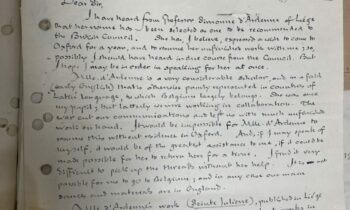 Dear Sir,
I have heard from Professor Simonne d'Ardenne of Liège
that her name has been selected as one to be recommended to
the British Council. She has, I believe, expressed a wish to come to
Oxford for a year, and to resume her unfinished work with me, so,
possibly I should have heard in due course from the Council. But
I hope I may be in order in speaking for her at once.
Mlle. d'Ardenne is a very considerable scholar, and in a field
(early English) that is otherwise poorly represented in countries of
Latin language, to which Belgium largely belongs. She was once
my pupil, but latterly we were working in collaboration. The
war cut our communications and left us with much unfinished
work on hand. It would be impossible for Mlle. d'Ardenne to
resume this without residence in Oxford. And, if I may speak of
myself, it would be of the greatest assistance to me, if it could be
made possible for her to return here for a time. I find it very
difficult to pick up the threads without her help. It is not
possible for me to go to Belgium, and in any case our main
sources and materials are in England.
Mlle d'Ardenne's work (Seinte Iuliene), published in Liège